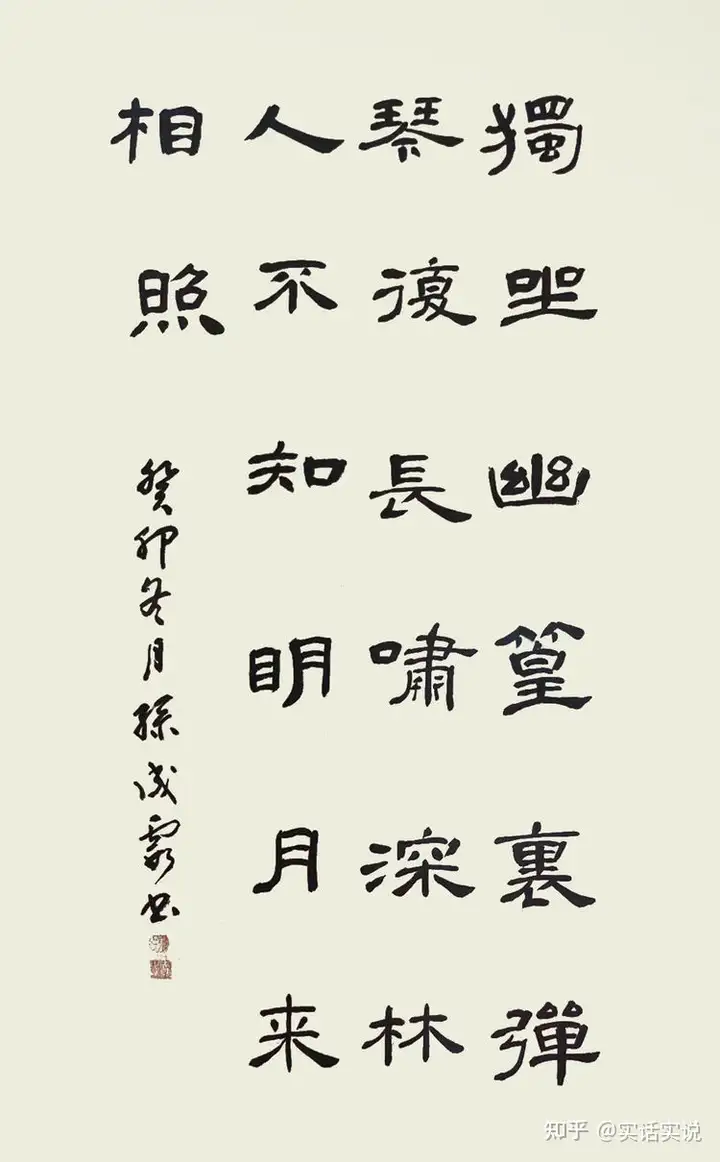 獨坐幽篁裏彈
琴復長嘯深林
人不知明月来
相照
癸卯冬月孫成霖书
知乎 @实话实说